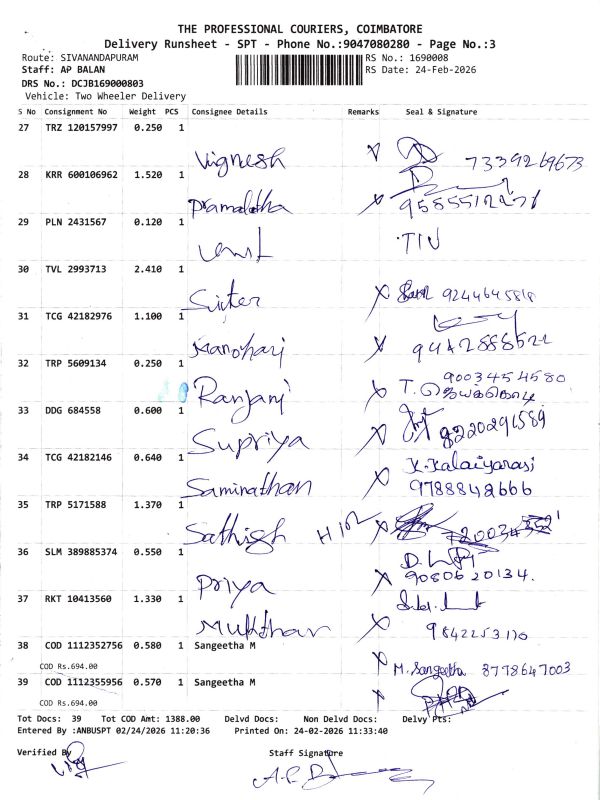 THE PROFESSIONAL COURIERS, COIMBATORE
Delivery Runsheet - SPT - Phone No.:9047080280 - Page No.:3
Route: SIVANANDAPURAM RS No.: 1690008
Staff: AP BALAN RS Date: 24-Feb-2026
DRS No.: DCJB169000803
Vehicle: Two Wheeler Delivery
S No Consignment No Weight PCS Consignee Details Remarks Seal & Signature
27 TRZ 120157997 0.250 1
Vignesh 7339269673
28 KRR 600106962 1.520 1
Pramalatha
29 PLN 2431567 0.120 1
30 TVL 2993713 2.410 1
Sister
31 TCG 42182976 1.100 1
Manohari
32 TRP 5609134 0.250 1
9003454580
Ranjani T. ஜெயக்கொடி
33 DDG 684558 0.600 1
Supriya 8220291589
34 TCG 42182146 0.640 1
K. Kalaiyarasi
Saminathan 9788842666
35 TRP 5171588 1.370 1
Sathish
36 SLM 389885374 0.550 1
Priya 9080620134.
37 RKT 10413560 1.330 1
Mukthar
38 COD 1112352756 0.580 1 Sangeetha M
COD Rs.694.00 M. Sangeetha 8778647003
39 COD 1112355956 0.570 1 Sangeetha M
COD Rs.694.00
Tot Docs: 39 Tot COD Amt: 1388.00 Delvd Docs: Non Delvd Docs: Delvy Pts:
Entered By :ANBUSPT 02/24/2026 11:20:36 Printed On: 24-02-2026 11:33:40
Verified By Staff Signature